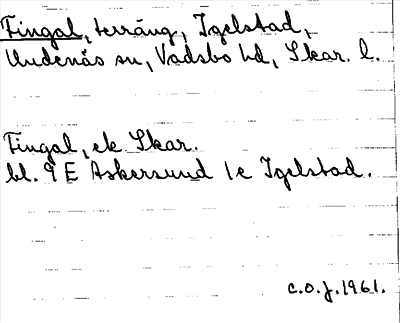 Fingal, terräng, Igelstad,
Undenäs sn, Vadsbo hd, Skar. l.
Fingal, ek Skar.
bl. 9 E Askersund 1e Igelstad.
C.O.J. 1961.